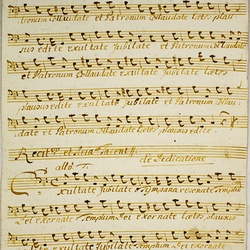 tronum Collaudate et Patronum Collaudate laetos plau-
sus edite exultate Jubilate et Patronum Collaudate
et Patronum Collaudate exultate Jubilate laetos
plausus edite exultate Jubilate et Patronum Collau-
date et Patronum Collaudate laetos plausus edite.
Recit: et Aria Tacent
de Dedicatione
allo.
Exultate Jubilate Tympana resonate Templum
Dei exornate Templum Dei exornate laetos plausus
edite exultate Jubilate et Templum Dei exornate